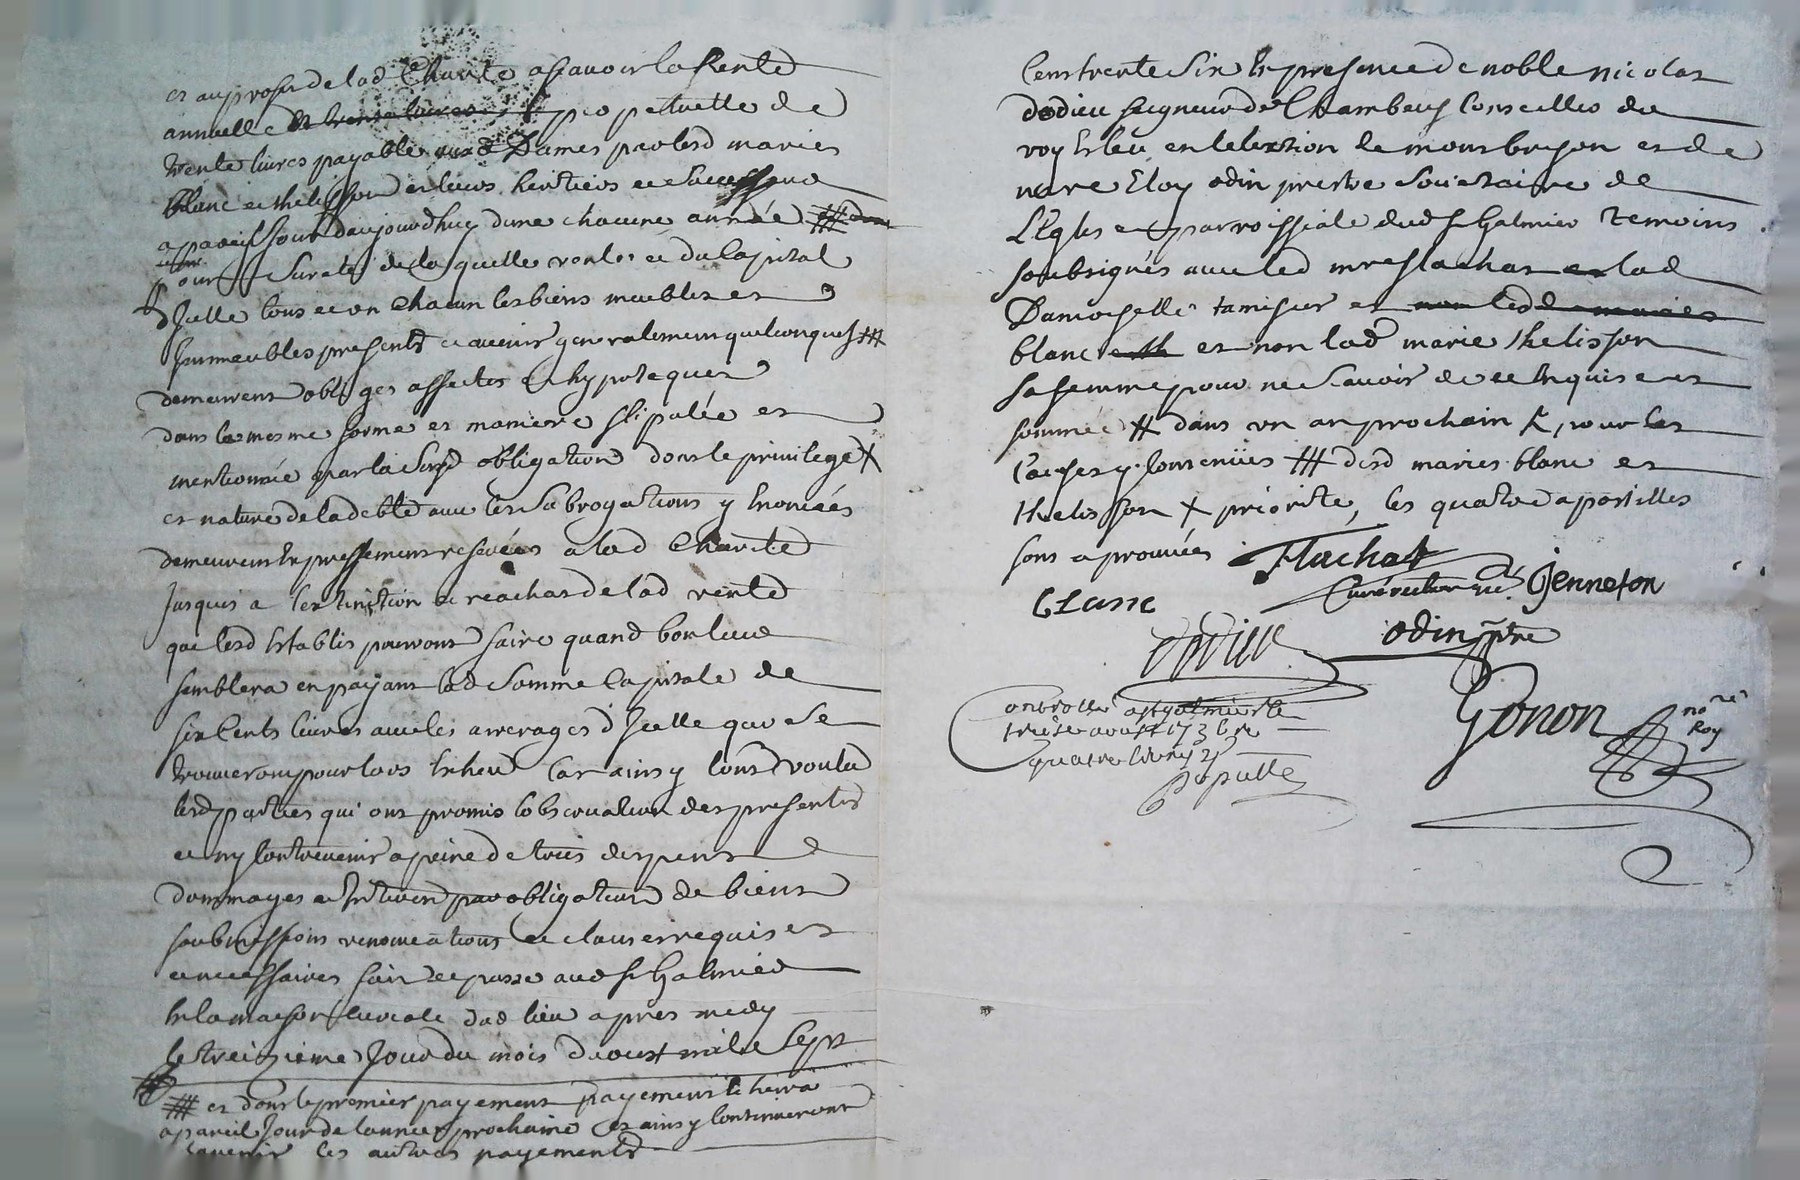 et au profit de lad Charite a scavoir la Rente
annuelle et perpetuelle de
trente livres payable auxd Dames par lesd maries
blanc et thelisson et leurs heritiers et successeurs
a pareil jour daujourdhuy dune chacune année ###
pour sureté de laquelle rente et du Capital
dJcelle tous et un chacun les biens meubles et
Jmmeubles presents et avenir generalement quelconques ###
demeurent obliges affectes et hypoteques
dans la mesme forme et maniere stipulée et
mentionnée par la susd obligation dont le privilege X
et nature de la debte avec les subrogations y Enoncées
demeurent Expressement reservées a lad Charite
Jusques a lextinction et reachat de lad rente
que lesd Establis pourront faire quand bon leur
semblera en payant lad somme Capitale de
six Cents livres avec les arrerages dJcelle qui se
trouveront pour lors Echeus Car ainsy lont voulu
lesd parties qui ont promis lobservation des presentes
et ny Contrevenir a peine de tous despens
dommages et Jnterets par obligation de biens
soubmissions renonciations et clauses requises
et necessaires fait et passé aud St Galmier
En la maison Curiale dud lieu apres midy
le treizieme Jour du mois daoust mil sept
### et dont le premier payement payement Echerra
a pareil Jour de lannée prochaine et ainsy Continueront
a lavenir les autres payements
Cens trente six En presence de noble nicolas
dodieu seigneur de Chambeuf Conseiller du
roy Esleu en lelection de montbrison et de
mere Eloy odin prestre Societaire de
LEglise parroissiale dud St Galmier Temoins
soubsignés avec led mre flachat et lad
Damoiselle tamisier et
blanc et non lad marie thelisson
sa femme pour ne scavoir de ce Enquise et
sommée # dans un an prochain , pour les
Causes y Contenües ### desd maries blanc et
thelisson X priorite, les quatre apostilles
sont aprouvées Flachat
Curé Jenneton
blanc
odin ptre
Controllé a st galmier le
treize aoust 1736 Re
quatre livres
Populle
Gonon nore Roy